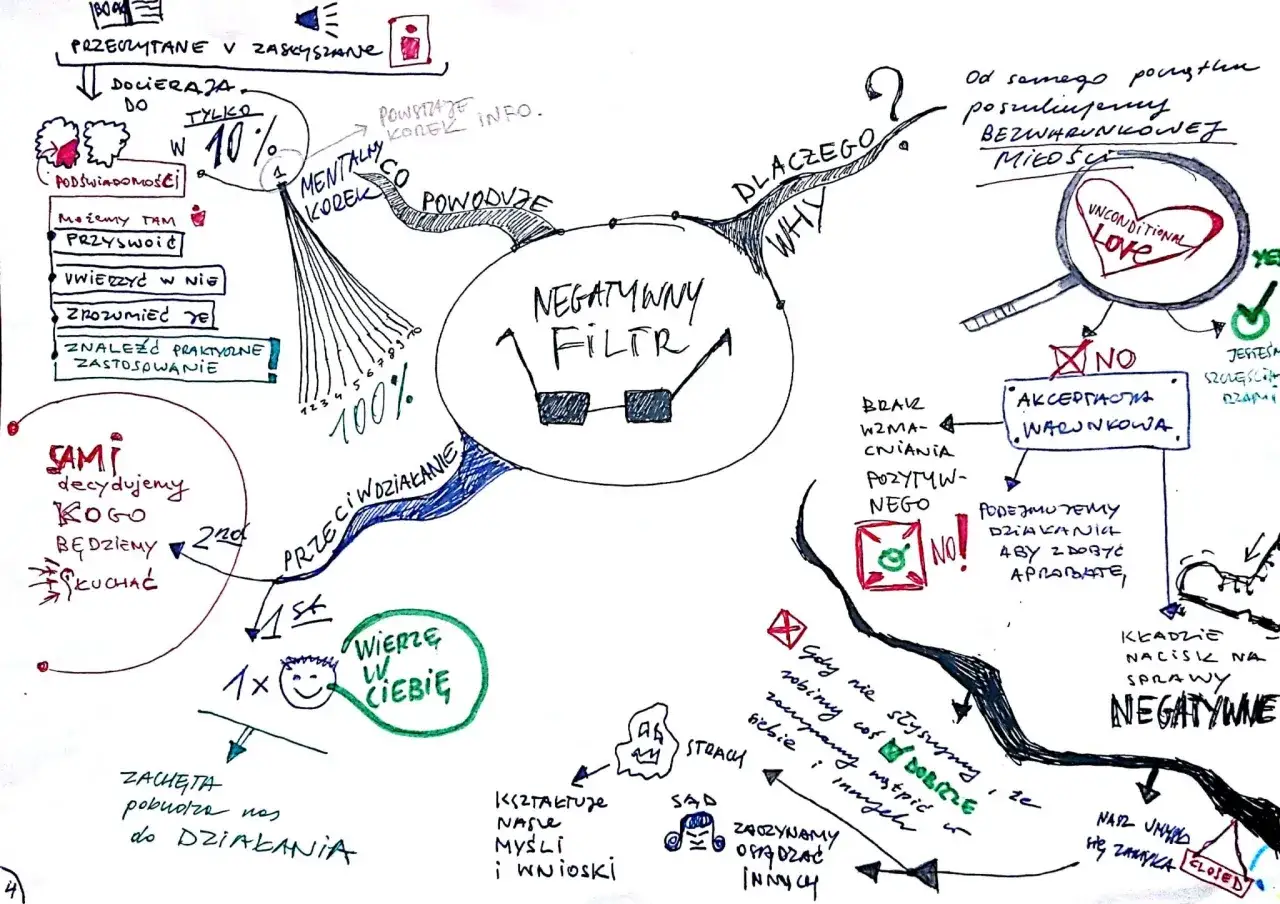 BOOK
PRZECZYTANE V ZASŁYSZANE i
DOCIERAJĄ
DO
TYLKO
W 10%
PODŚWIADOMOŚCI
MOŻEMY TAM i
PRZYSWOIĆ
UWIERZYĆ W NIE
ZROZUMIEĆ JE
ZNALEŹĆ PRAKTYCZNE
ZASTOSOWANIE !
1
POWSTAJE
KOREK INFO.
MENTALNY
KOREK
1 2 3 4 5 6 7 8 9 10
100%
CO POWODUJE
NEGATYWNY
FILTR
DLACZEGO ?
WHY
Od samego początku
poszukujemy
BEZWARUNKOWEJ
MIŁOŚCI
UNCONDITIONAL
LOVE
YES
JESTEŚM
SZCZĘŚLIW
RZAMI
NO
AKCEPTACJA
WARUNKOWA
BRAK
WZMA-
CNIANIA
POZYTYW-
NEGO
NO!
PODEJMUJEMY
DZIAŁANIA
ABY ZDOBYĆ
APROBATĘ,
KŁADZIE
NACISK NA
SPRAWY
NEGATYWNE
NASZ UMYSŁ
SIĘ ZAMYKA
CLOSED
Gdy nie słyszymy, że
robimy coś DOBRZE
zaczynamy wątpić w
siebie i innych
STRACH
KSZTAŁTUJE
NASZE
MYŚLI
I WNIOSKI
SĄD
ZACZYNAMY
OSĄDZAĆ
INNYCH
PRZECIWDZIAŁANIE
1st
1x
WIERZĘ
W
CIEBIĘ
ZACHĘTA
pobudza nas
do DZIAŁANIA
2nd
SAMI
decydujemy
KOGO
BĘDZIEMY
SŁUCHAĆ
4